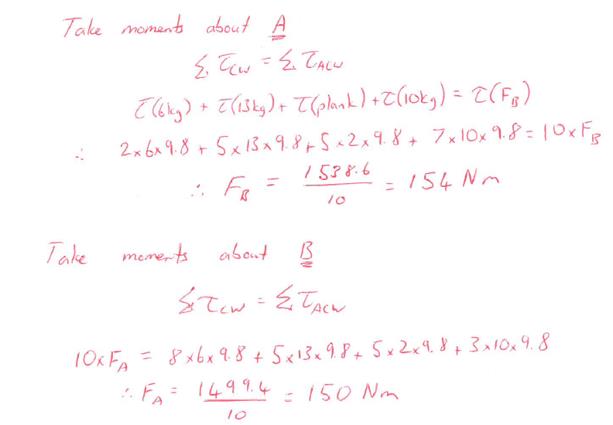 Take moments about A
Σ τCW = Σ τACW
τ(6kg) + τ(13kg) + τ(plank) + τ(10kg) = τ(FB)
∴ 2×6×9.8 + 5×13×9.8 + 5×2×9.8 + 7×10×9.8 = 10×FB
∴ FB = 1538.6/10 = 154 Nm
Take moments about B
Σ τCW = Σ τACW
10×FA = 8×6×9.8 + 5×13×9.8 + 5×2×9.8 + 3×10×9.8
∴ FA = 1499.4/10 = 150 Nm